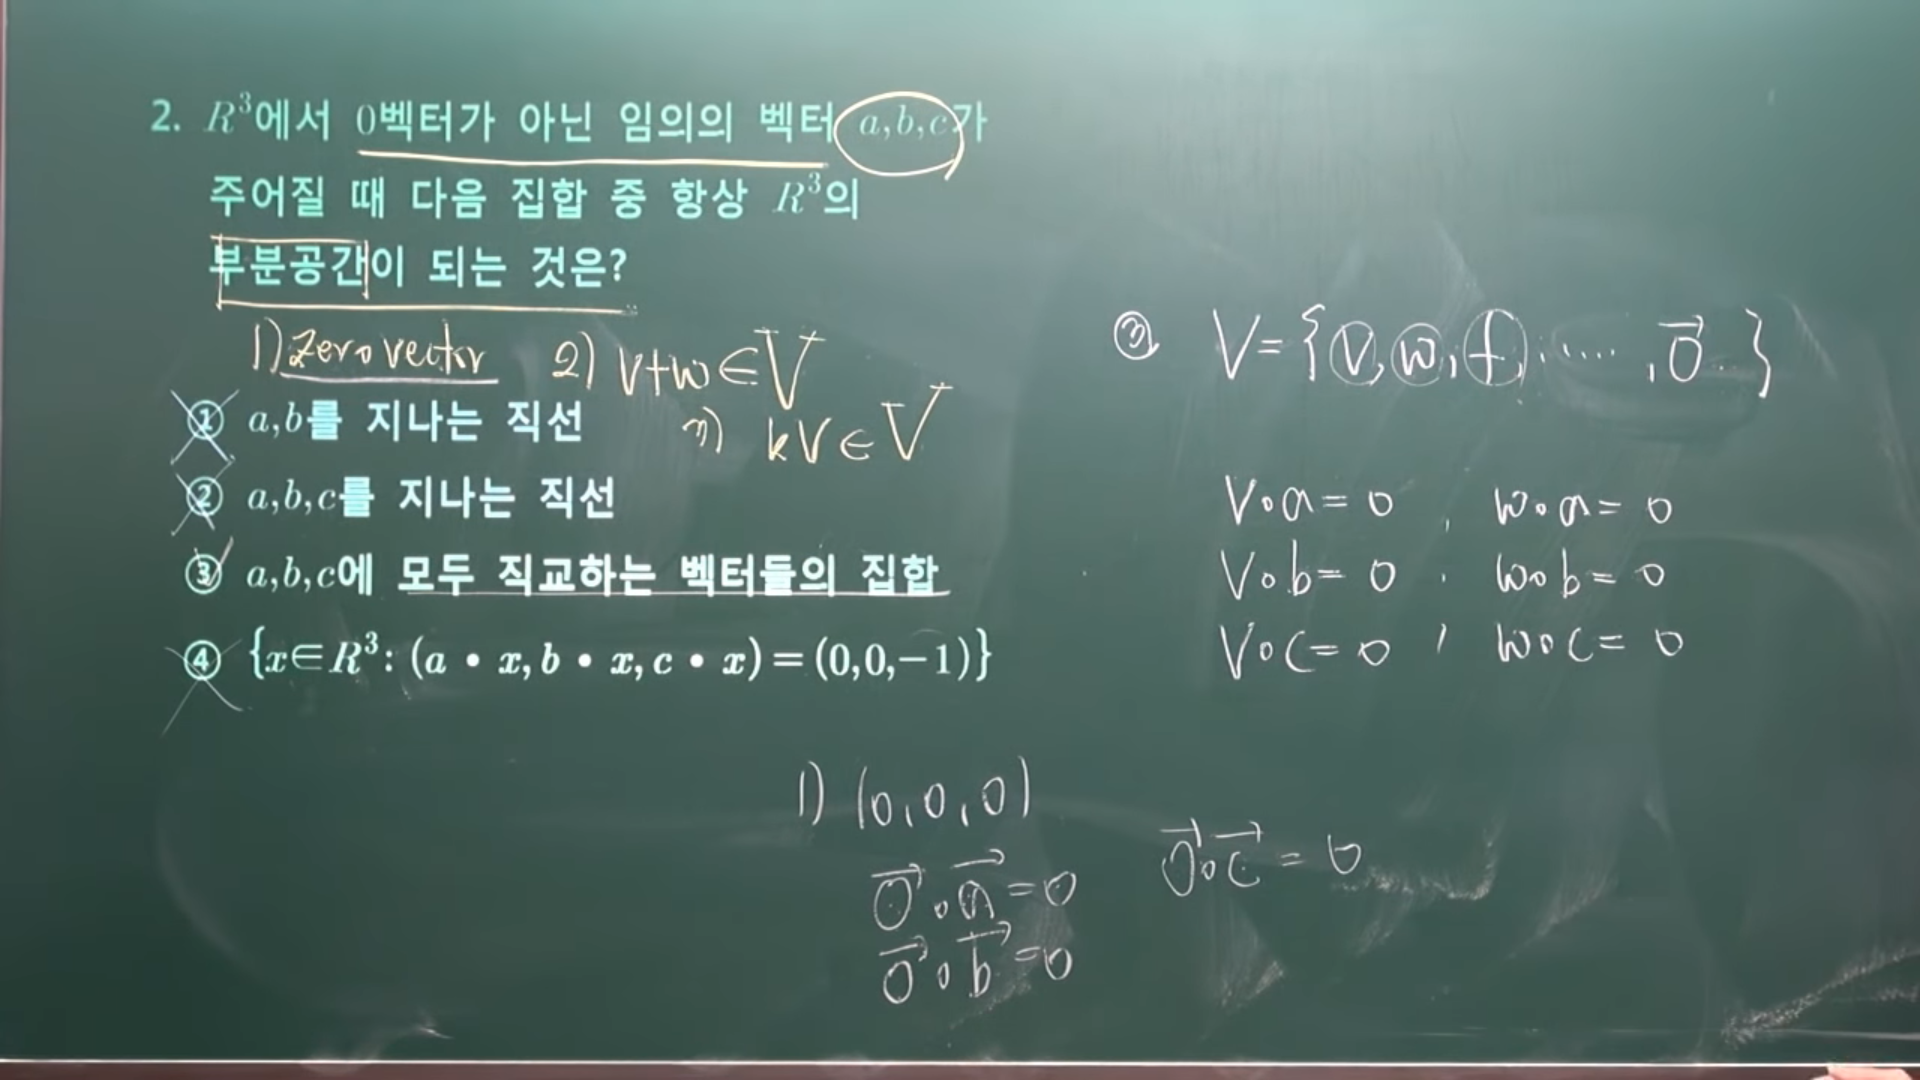 2. R³에서 0벡터가 아닌 임의의 벡터 a,b,c가
주어질 때 다음 집합 중 항상 R³의
부분공간이 되는 것은?
1) Zero vector 2) V+W∈V
3) kV∈V
① a,b를 지나는 직선
② a,b,c를 지나는 직선
③ a,b,c에 모두 직교하는 벡터들의 집합
④ {x∈R³: (a • x, b • x, c • x) = (0,0,−1)}
③ V={V,W,f,.....,0⃗}
V∘a=0, W∘a=0
V∘b=0, W∘b=0
V∘c=0, W∘c=0
1) (0,0,0)
0⃗∘a⃗=0
0⃗∘b⃗=0
0⃗∘c⃗=0